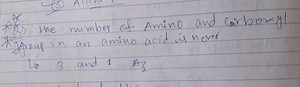 The number of Amino and Carboxyl
group in an amino acid is
3 and 1